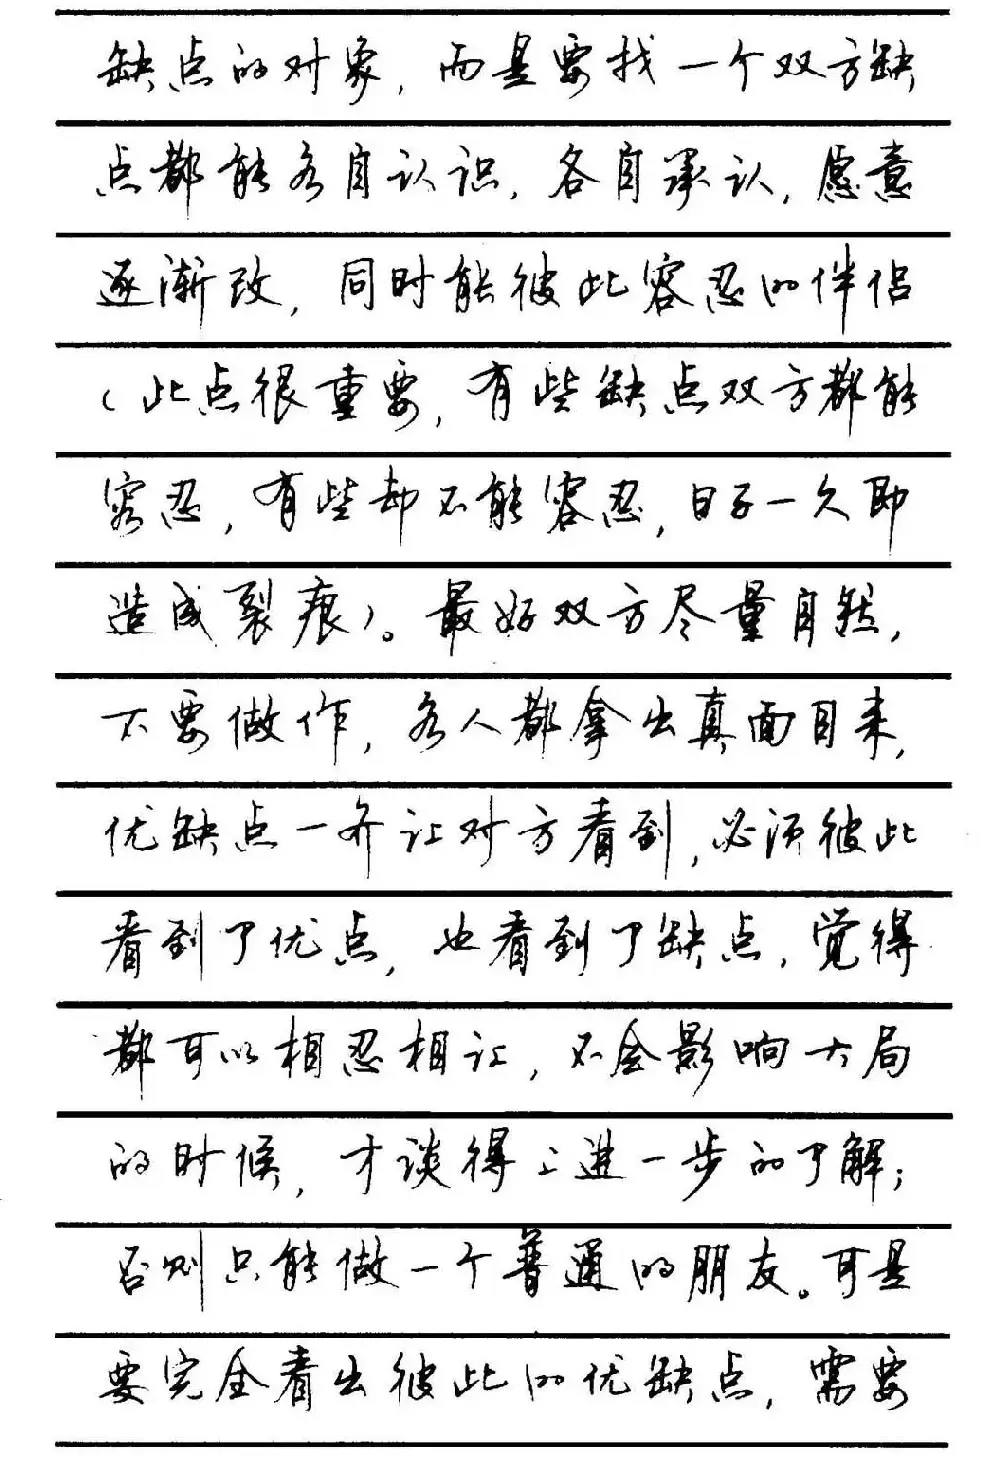 缺点的对象,而是要找一个双方缺
点都能各自认识,各自承认,愿意
逐渐改,同时能彼此容忍的伴侣
(此点很重要,有些缺点双方都能
容忍,有些却不能容忍,日子一久即
造成裂痕)。最好双方尽量自然,
不要做作,各人都拿出真面目来,
优缺点一齐让对方看到,必须彼此
看到了优点,也看到了缺点,觉得
都可以相忍相让,不会影响大局
的时候,才谈得上进一步的了解;
否则只能做一个普通的朋友。可是
要完全看出彼此的优缺点,需要